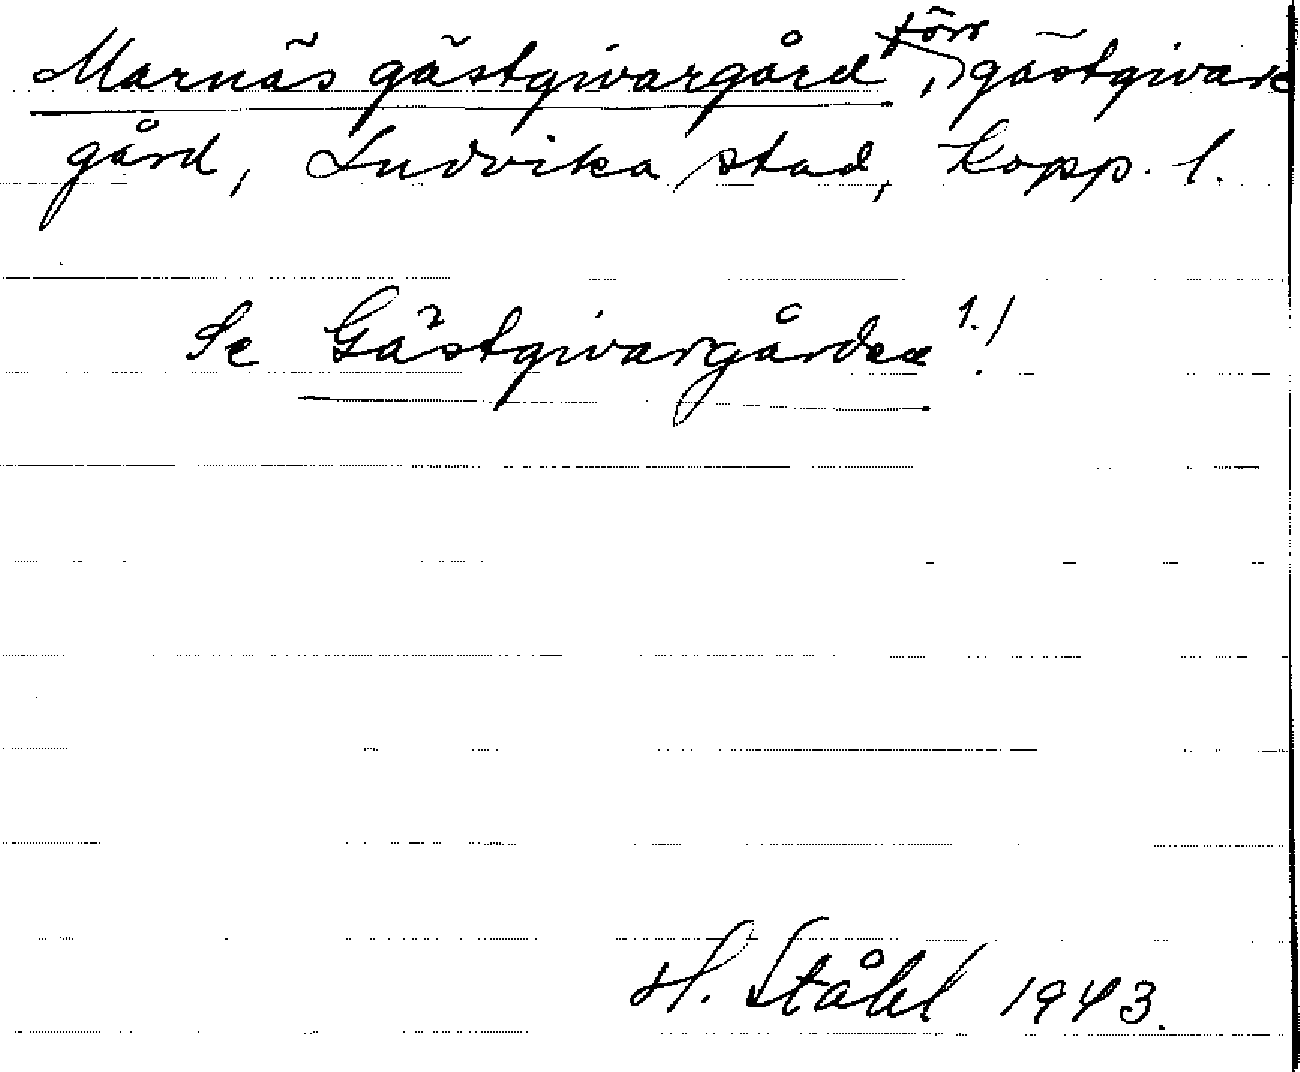 Marnäs gästgivargård, förr gästgivare
gård, Ludvika stad, Kopp. l.
Se Gästgivargården 1.!
H. Ståhl 1943.